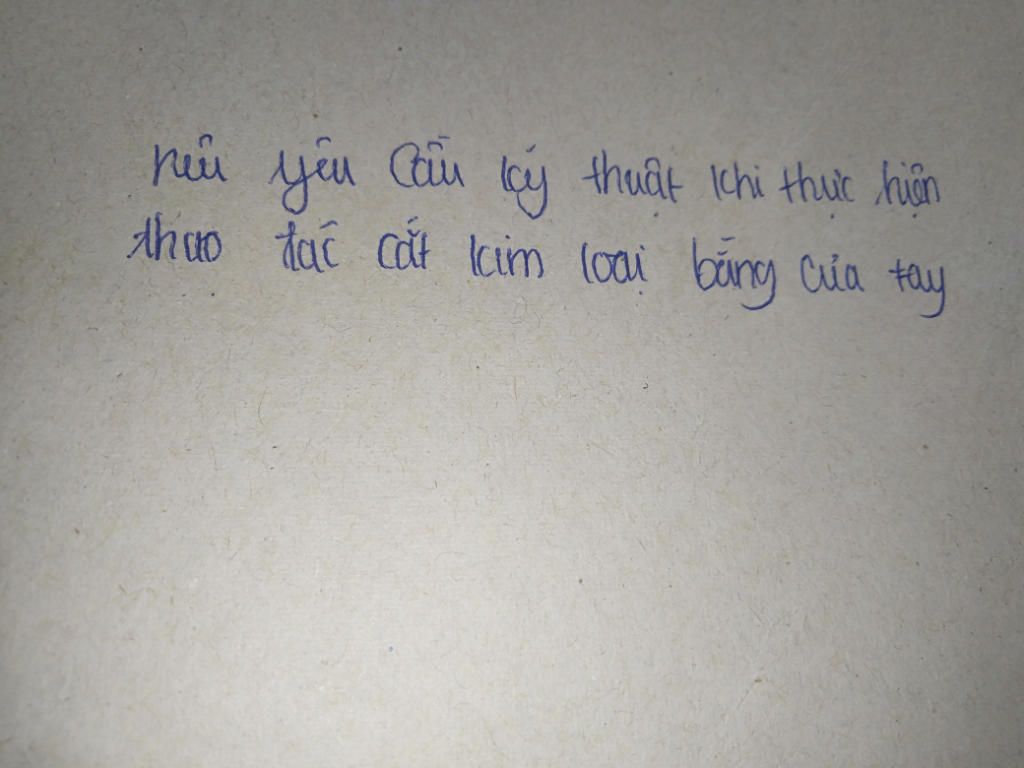 nêu yêu cầu kỹ thuật khi thực hiện
thao tác cắt kim loại bằng cưa tay